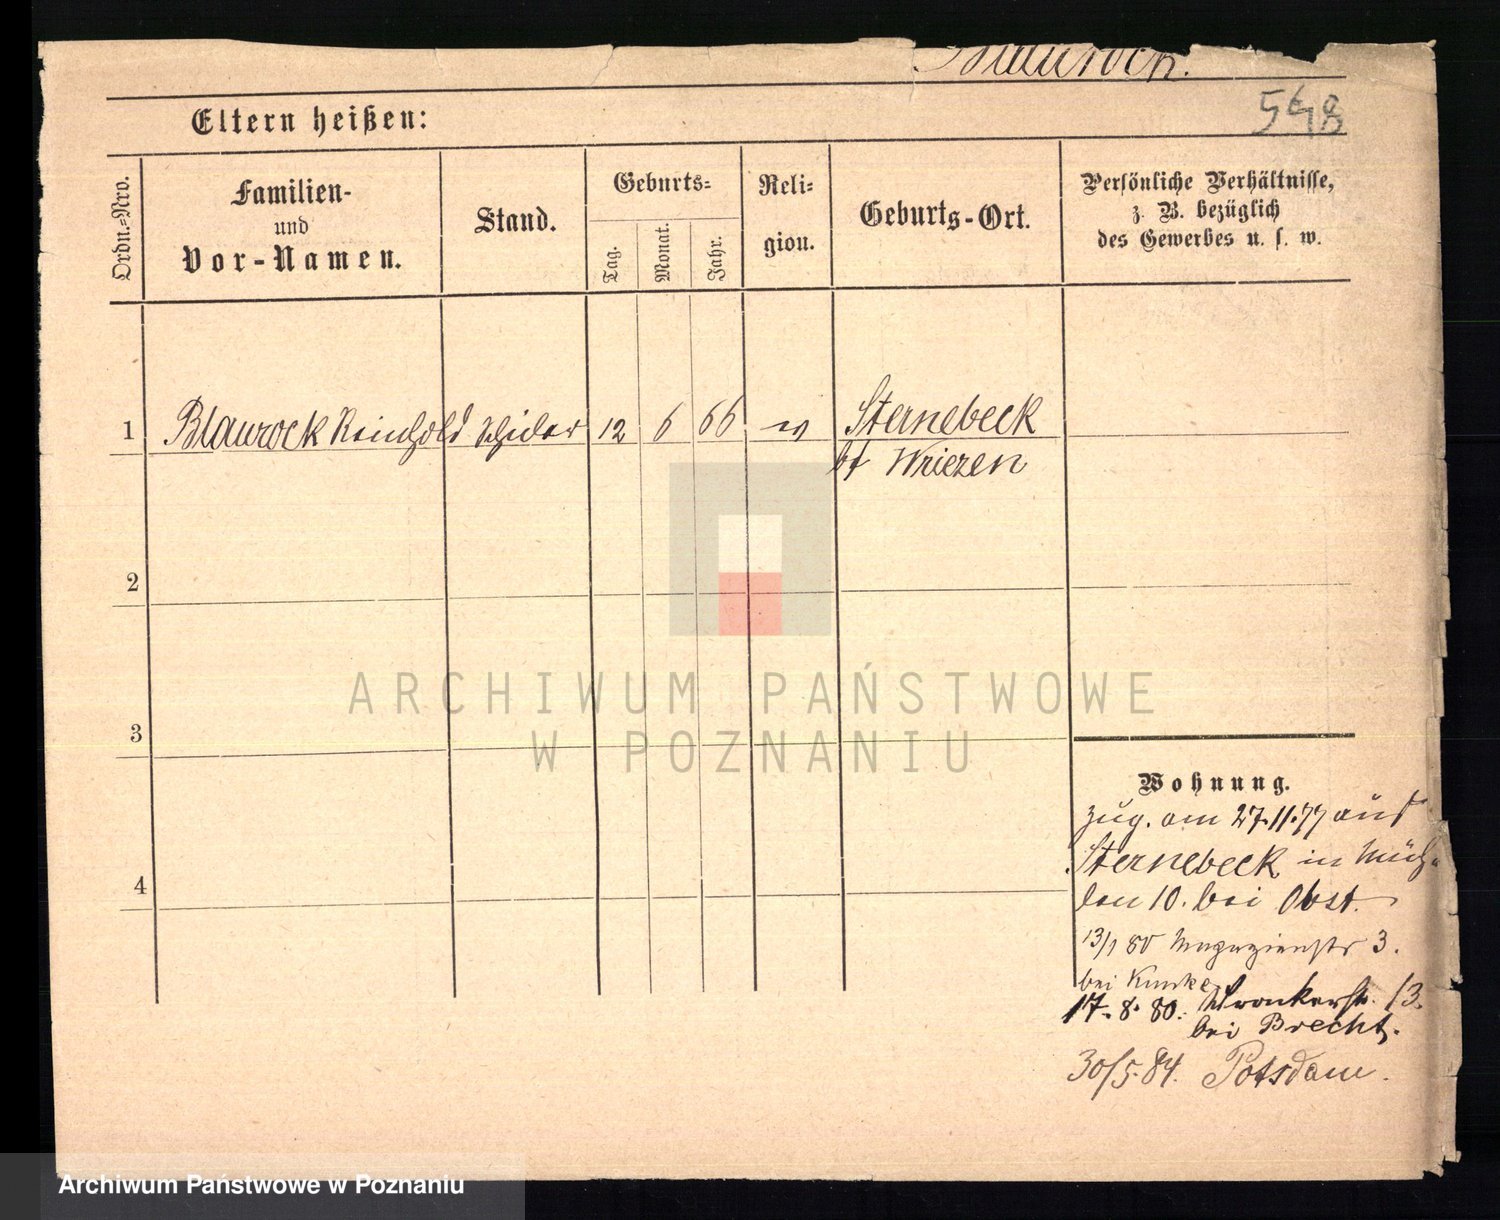 Blaurock.
548
Eltern heißen:
Ordn.-Nro.
Familien-
und
Vor-Namen.
Stand.
Geburts-
Tag.
Monat.
Jahr.
Reli-
gion.
Geburts-Ort.
Persönliche Verhältnisse,
z. B. bezüglich
des Gewerbes u. s. w.
1 Blaurock Reinhold Schüler 12 6 66 ev Sternebeck
bf Wriezen
2
3
4
Wohnung.
zug. am 27.11.77 aus
Sternebeck in Müh-
len 10. bei Obst.
13/1 80 Magazienstr 3.
bei Kunke
17.8.80. Wronkerstr. 13.
bei Brecht.
30/5.84. Potsdam.
ARCHIWUM PAŃSTWOWE
W POZNANIU
Archiwum Państwowe w Poznaniu